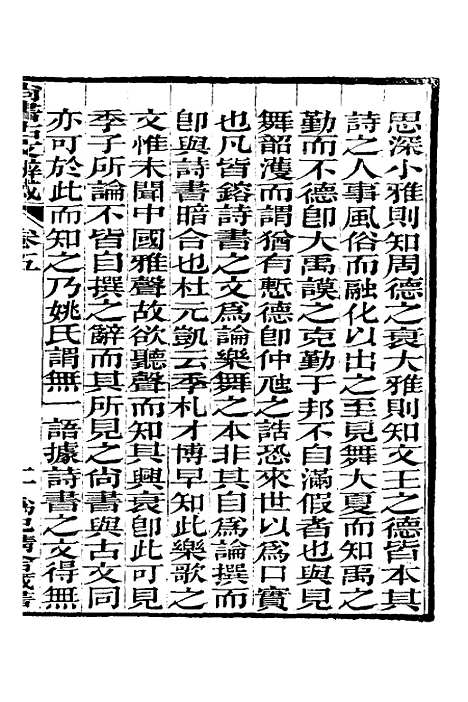 思深小雅則知周德之衰大雅則知文王之德皆本其
詩之人事風俗而融化以出之至見舞大夏而知禹之
勤而不德卽大禹謨之克勤于邦不自滿假者也與見
舞韶濩而謂猶有慙德卽仲虺之誥恐來世以爲口實
也凡皆鎔詩書之文爲論樂舞之本非其自爲論撰而
卽與詩書暗合也杜元凱云季札才博早知此樂歌之
文惟未聞中國雅聲故欲聽聲而知其興衰卽此可見
季子所論不皆自撰之辭而其所見之尚書與古文同
亦可於此而知之乃姚氏謂無一語據詩書之文得無
尚書古文辨惑 卷五 二